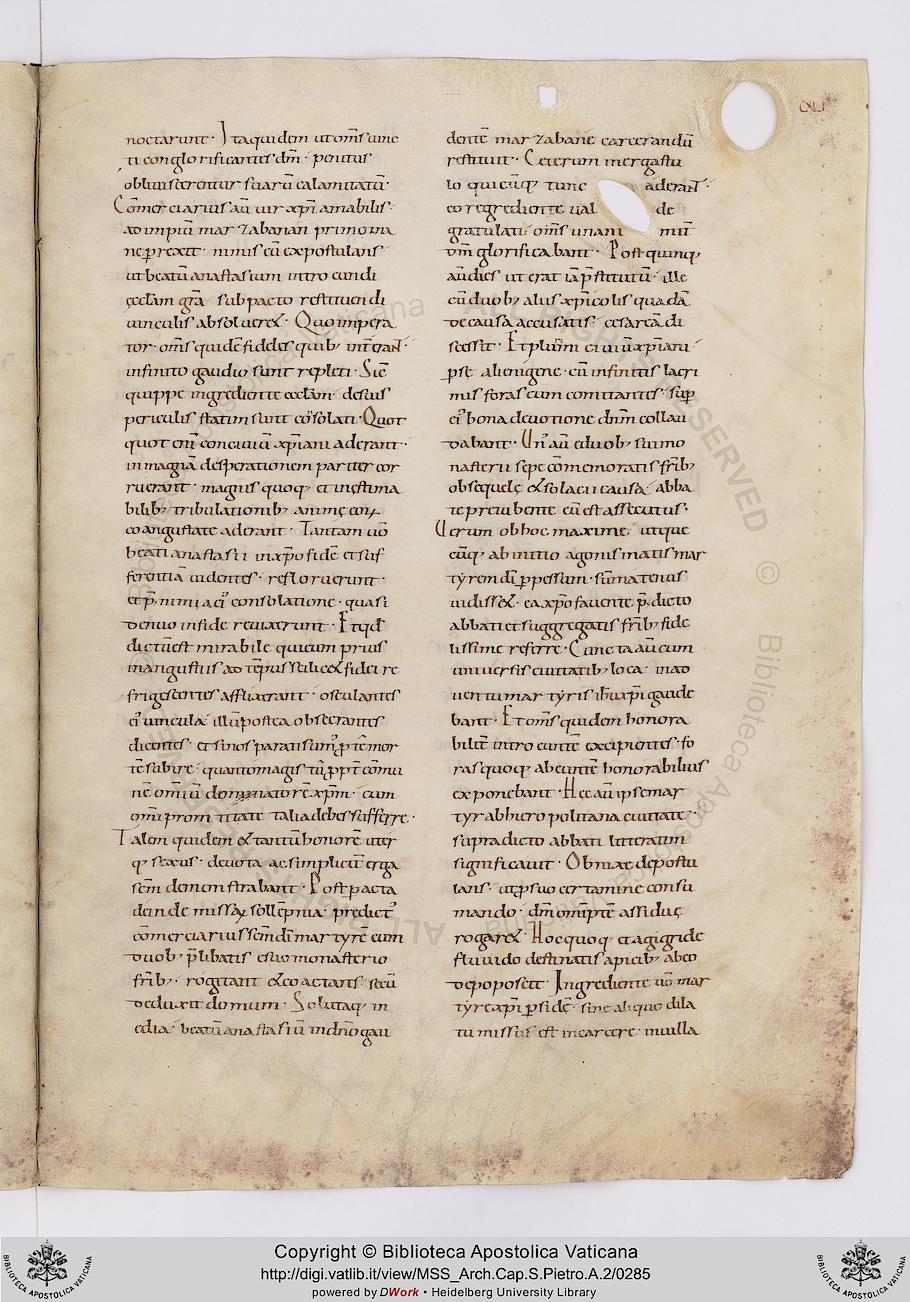 noctarunt· Itaquidem ut om̄s iunc
ti conglorificantes dm̄· penitus
obliuiscerentur suarū calamitatū·
Cōmerciarius aū uir xp̄i amabilis·
ad impiū marzabanan primo ma
ne perrexit· nimis eū expostulans·
ut beatū anastasium introeundi
ęcclam grā· sub pacto restituendi
uinculis absolueret· Quo impera
tor· om̄s quidē fiddes quib; int̄erant·
infinito gaudio sunt repleti· Sic
quippe ingrediente ecclam· de suis
periculis statim sunt cōsolati· Quot
quot eni conciuiū xp̄iani aderant·
in magnā desperationem pariter cor
ruerant· magnis quoq; et inęstima
bilib; tribulationib; animę
coangustate aderant· Tantam uō
beati anastasii in xp̄o fidē et suf
ferentiā uidentes· refloruerunt·
consolatione· quasi
denuo in fide reuixerunt· Et qd̄
dictū est mirabile qui cum prius
in angustiis ad tēpus scilicet fidei re
frigescentes affluxerant· osculantes
ei' uincula illū postea obsecrantes
dicentes· et si nos parati sum' p te mor
tē subire· quanto magis tū ppt comu
nē om̄iū dominatorē xp̄m· cum
om̄i promtitate talia debes sufferre·
Talem quidem & tantū honorē uter
q; sexus· deuota ac simplicit̄ erga
scm̄ demonstrabant· Post pacta
deinde missaꝝ sollēpnia· predict'
cōmerciarius scm̄ di martyrē cum
duob; p̄libatis e suo monasterio
frib;· rogitans & coactans· secū
deduxit domum· Solutaq; in
edia· beatū anastasiū indn̄o gau
dentē marzabane carcerandū
restituit· Ceterum in ergastu
lo quicūq; tunc aderant·
eo regrediente ual de
gratulati· om̄s unani mit̄
dm̄ glorificabant· Post quinq;
aū dies ut erat iā p̄stitutū· ille
cū duob; aliis xp̄icolis quadā
de causa accusatis· cesareā di
scessit· Et plurimi ciuiū xp̄iani
pse alienigene· cū infinitis lacri
mis foras eum comitantes· sup
ei' bona deuotione dnm̄ collau
dabant· Un' aū e duob; sui mo
nasterii sepe cōmemoratis frib;
obsequelę & solacii causā abba
te precibente eū est assecutus·
Uerum ob hoc maxime· utique
cūq; ab initio agonis matis mar
tyrem di ppessum· sūma tenus
uidisset· ea xp̄o fauente p̄dicto
abbati et suggregatis frib; fide
lissime referre· Cuncta aū cum
uniuersis ciuitatib; loca· in ad
uentu martyris ihu xp̄i gaude
bant· Et om̄s quidem honora
bilit̄ introeuntē excipientes· fo
ras quoq; abeuntē honorabilius
exponebant· Hec aū ipse mar
tyr ab hieropolitana ciuitate·
supradicto abbati litteratim
significauit· Ob mae depostu
lans· utp suo certamine consu
mando· dm̄ om̄pte assiduę
rogaret· Hoc quoq; et a giggide
fluuido destinatis apicib; ab eo
depoposcit· Ingrediente uō mar
tyre xp̄i psidē· sine aliquo dila
tu missus est in carcere· in uilla